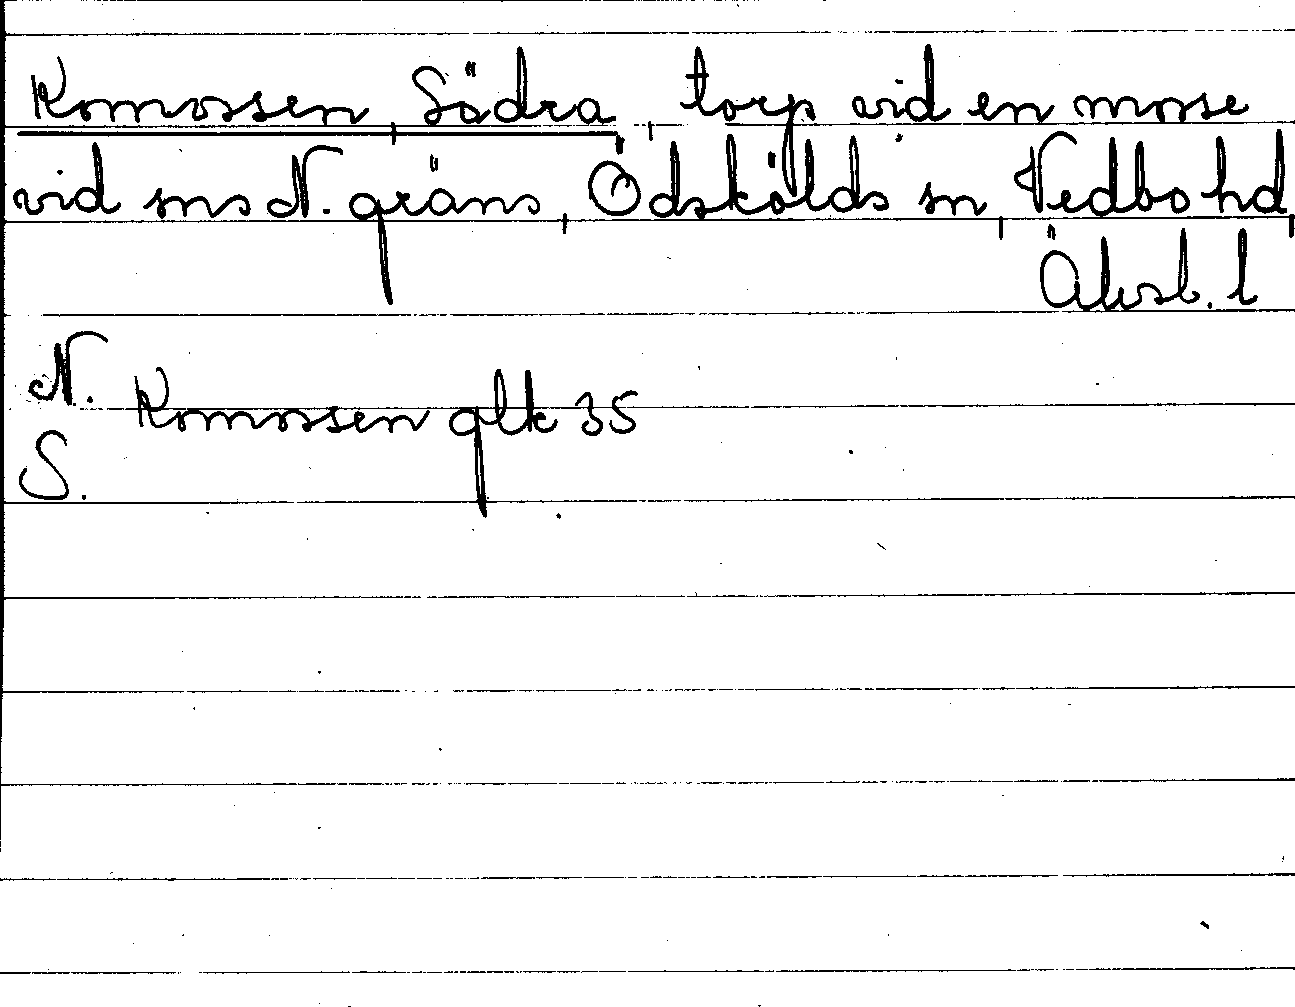 Komossen, Södra, torp vid en mosse
vid sns N. gräns, Ödskölds sn, Vedbo hd,
Älvsb. l
N.
Komossen glk 35
S.